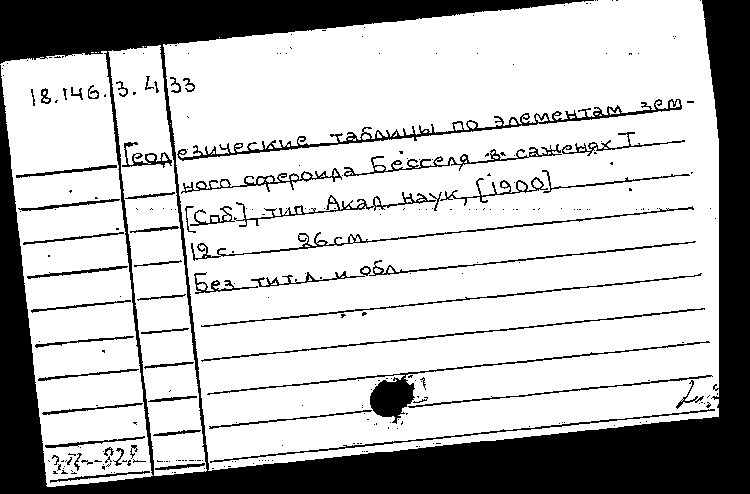 18.146.3.433
Геодезические таблицы по элементам зем-
ного сфероида Бесселя в саженях Т.
[Спб.], тип. Акад. наук, [1900]
12 с. 26 см.
Без тит. л. и обл.